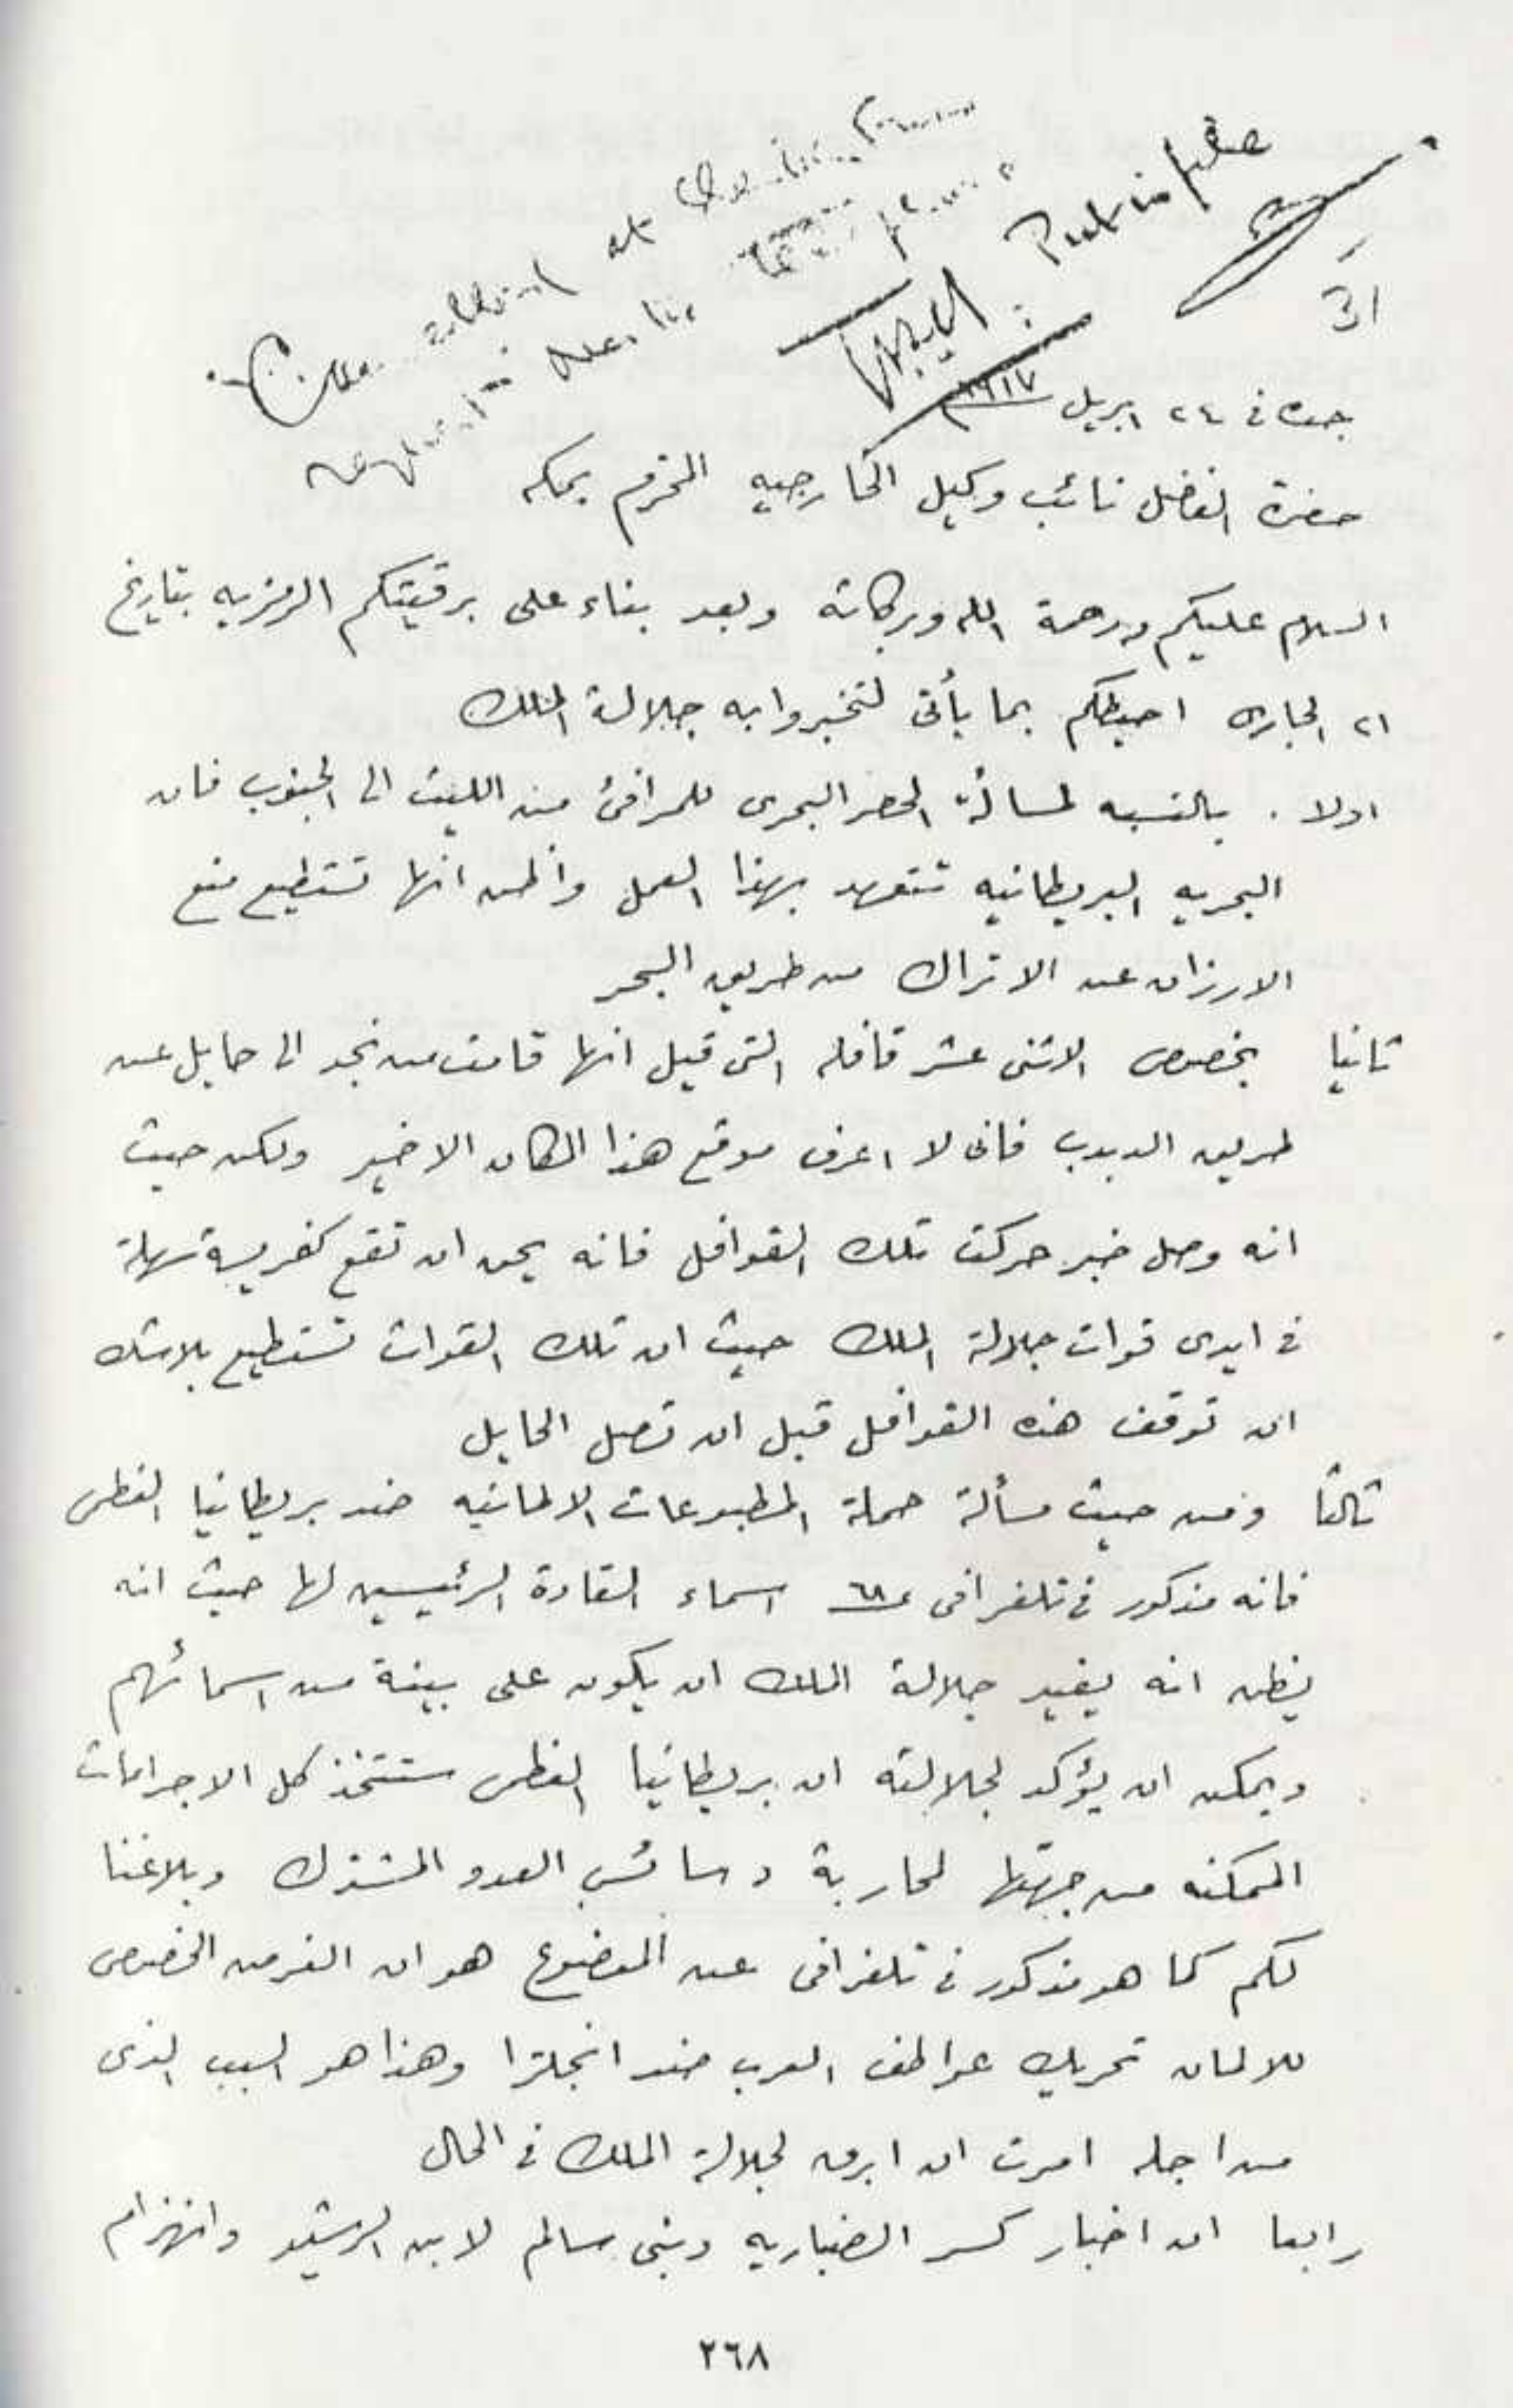 الى
جده في ٢٤ ابريل ١٩١٧
حضرة الفاضل نائب وكيل الخارجيه المحترم بمكه
السلام عليكم ورحمة الله وبركاته وبعد بناء على برقيتكم الرمزيه بتاريخ
٢١ الجارى احيطكم بما يأتى لتخبروا به جلالة الملك
اولا . بالنسبه لمسألة الحصر البحرى للمرافئ من الليث الى الجنوب فان
البحريه البريطانيه تتعهد بهذا العمل واظن انها تستطيع منع
الارزاق عن الاتراك من طريق البحر
ثانيا بخصوص الاثنى عشر قافله التى قيل انها قامت من نجد الى حايل عن
طريق الدبدب فانى لا اعرف موقع هذا المكان الاخير ولكن حيث
انه وصل خبر حركت تلك القوافل فانه يمكن ان تقع كفريسة سهلة
فى ايدى قوات جلالة الملك حيث ان تلك القوات تستطيع بلا شك
ان توقف هذه القوافل قبل ان تصل الحايل
ثالثا ومن حيث مسألة حملة المطبوعات الالمانيه ضد بريطانيا العظمى
فانه مذكور فى تلغرافى اسماء القادة الرئيسيين لها حيث انه
يظن انه يفيد جلالة الملك ان يكون على بينة من اسمائهم
ويمكن ان يؤكد لجلالته ان بريطانيا العظمى ستتخذ كل الاجراءات
الممكنه من جهتها لمحاربة دسائس العدو المشترك وبلاغنا
لكم كما هو مذكور فى تلغرافى عن الموضوع هو ان الغرض الخصوصى
للالمان تحريك عواطف العرب ضد انجلترا وهذا هو السبب الذى
من اجله امرت ان ابرق لجلالة الملك فى الحال
رابعا ان اخبار كسر الضباريه وبنى سالم لابن الرشيد وانهزام
٢٦٨